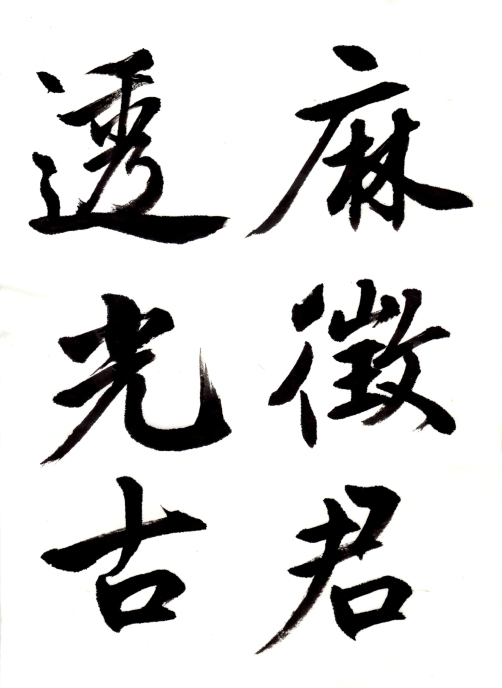 麻徴君
透光古